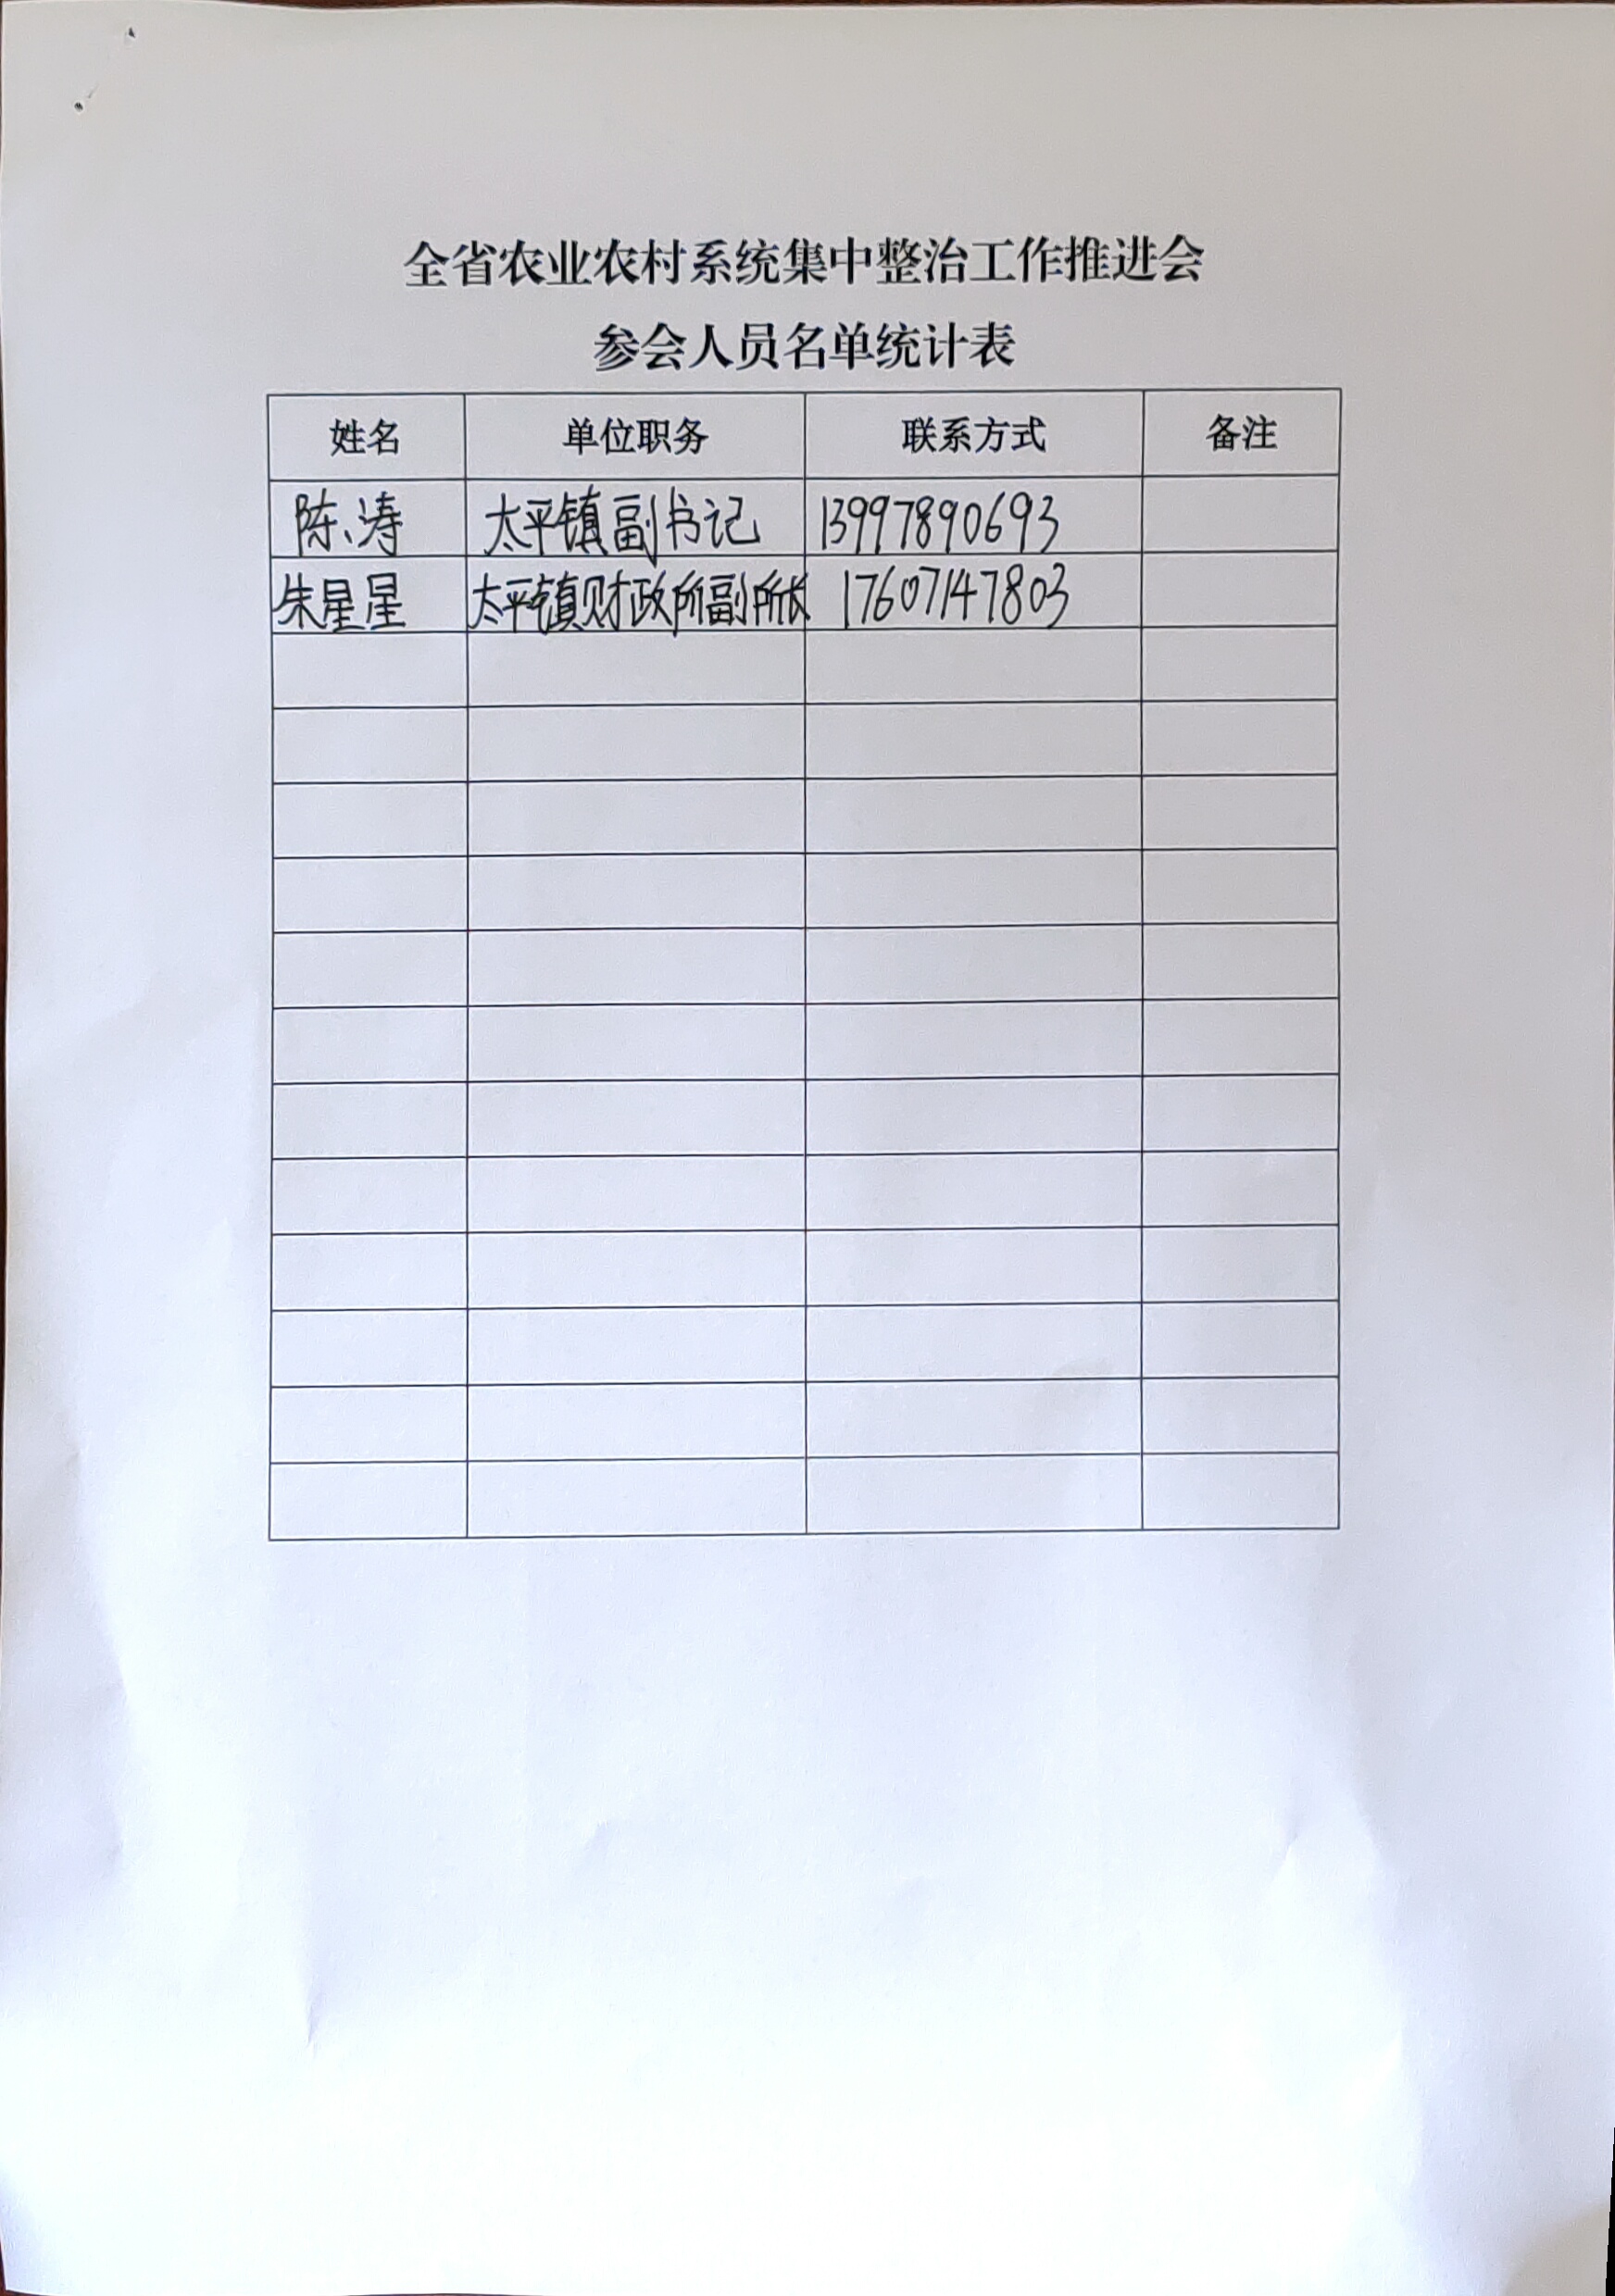 全省农业农村系统集中整治工作推进会
参会人员名单统计表
姓名 单位职务 联系方式 备注
陈涛 太平镇副书记 13997890693
朱星星 太平镇财政所副所长 17607147803